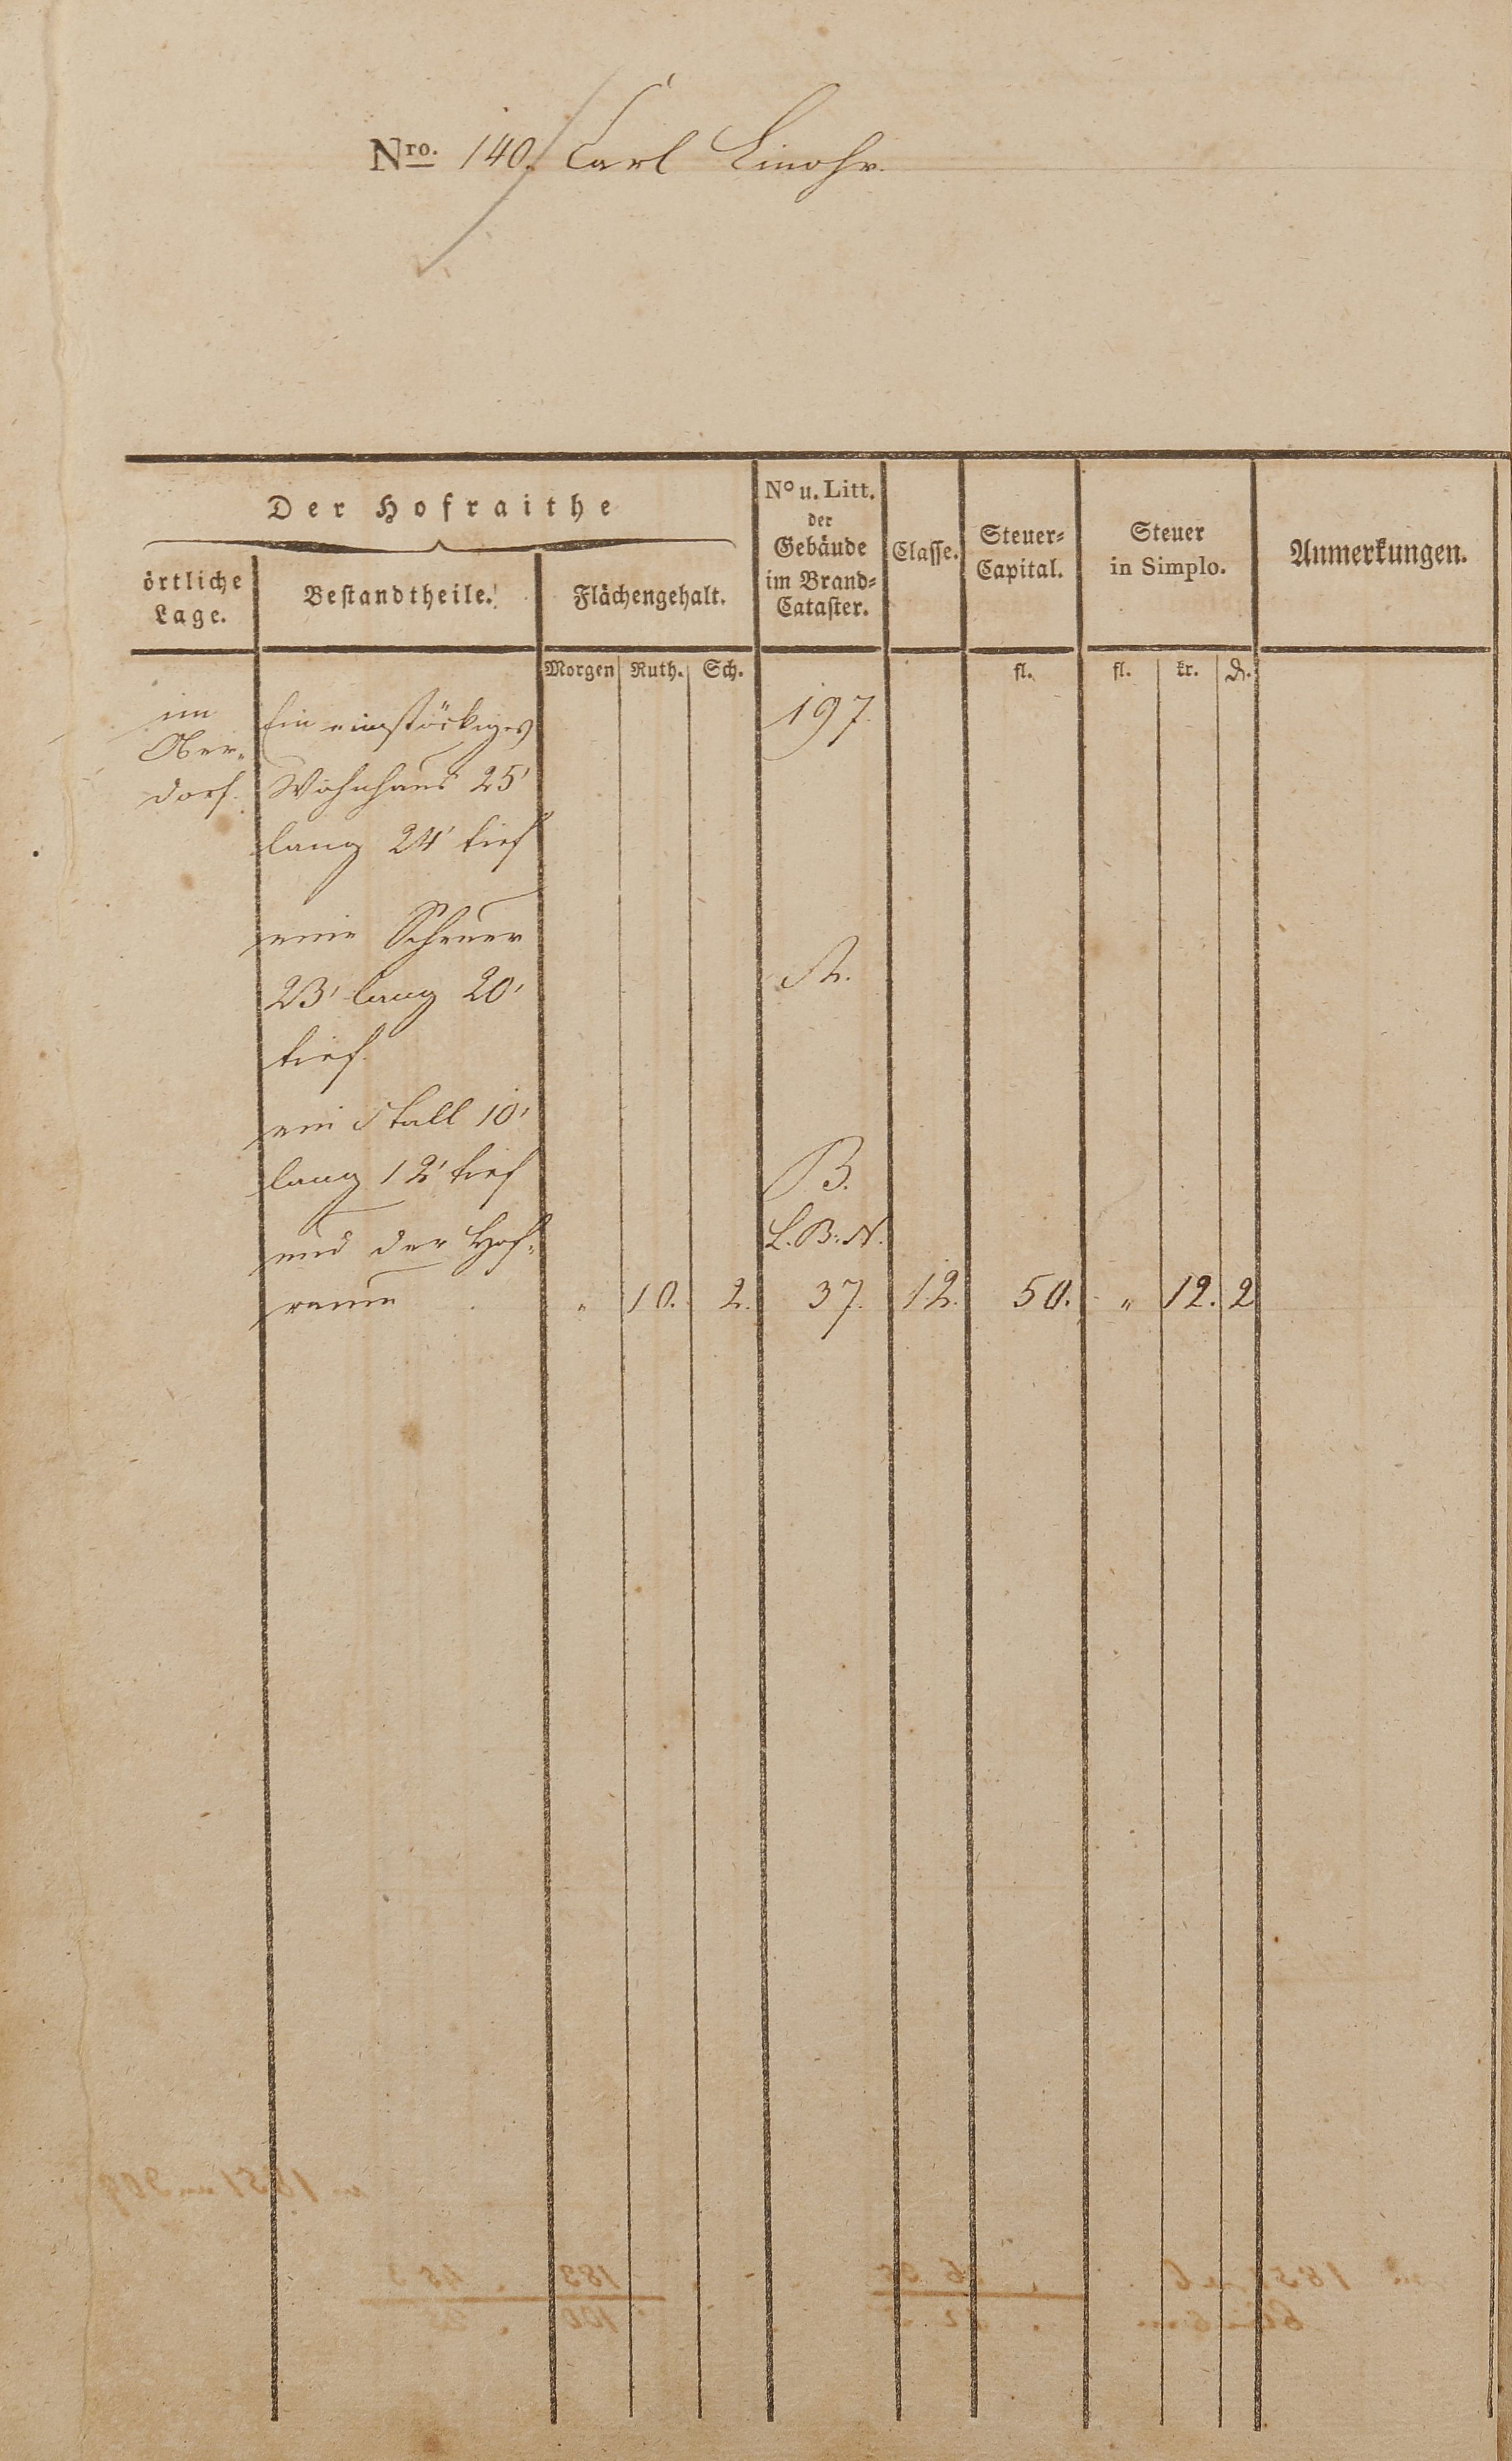 Nro. 140. Carl Linohr.
Der Hofraithe
örtliche
Lage.
Bestandtheile.
Flächengehalt.
No u. Litt.
der
Gebäude
im Brand-
Cataster.
Classe.
Steuer-
Capital.
Steuer
in Simplo.
Anmerkungen.
Morgen Ruth. Sch. fl. fl. kr. d.
im
Ober-
dorf.
Ein einstöckiges 197.
Wohnhaus 25'
lang 24' tief
eine Scheuer
23' lang 20' A.
tief.
ein Stall 10'
lang 12' tief B.
und der Hof- L. B. N.
raum . " 10. 2. 37. 12. 50. " 12. 2